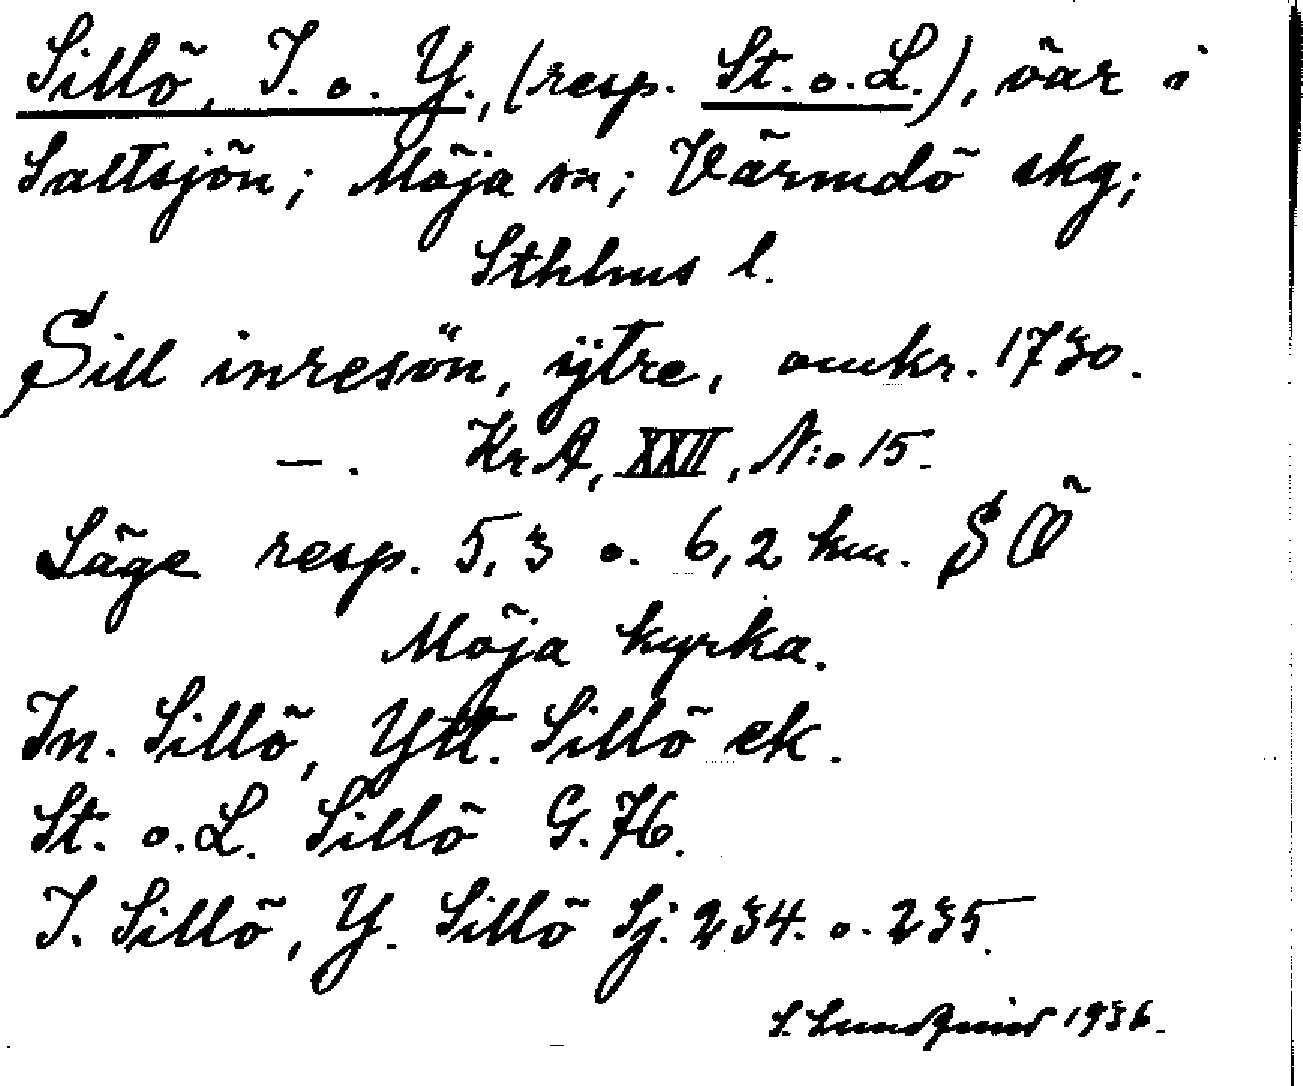 Sillö, I. o. Y., (resp. St. o. L.), öar i
Saltsjön; Möja sn; Värmdö skg;
Sthlms l.
Sill inresön, ÿtre, omkr. 1730.
—. KrA, XXII, N:o 15.
Läge resp. 5,3 o. 6,2 km. SÖ
Möja kyrka.
In. Sillö, Ytt. Sillö ek.
St. o. L. Sillö G. 76.
I. Sillö, Y. Sillö Sj. 234. o. 235.
S. Lundqvist 1936.